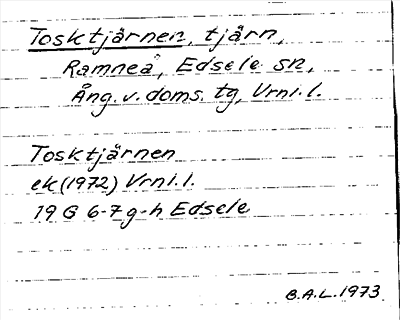 Tosktjärnen, tjärn,
Ramnea, Edsele sn,
Ång. v. doms. tg, Vrnl. l.
Tosktjärnen
ek (1972) Vrnl. l.
19 G 6-7 g-h Edsele
B.A.L. 1973